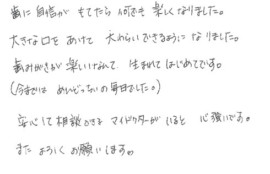 歯に自信が もてたら 何でも 楽しくなりました。
大きな口を あけて 大わらいできるように なりました。
歯みがきが 楽しいなんて 生まれて はじめてです。
(今までは めんどくさいの毎日でした。)
安心して 相談できる マイドクターが いると 心強いです。
また よろしく お願いします。